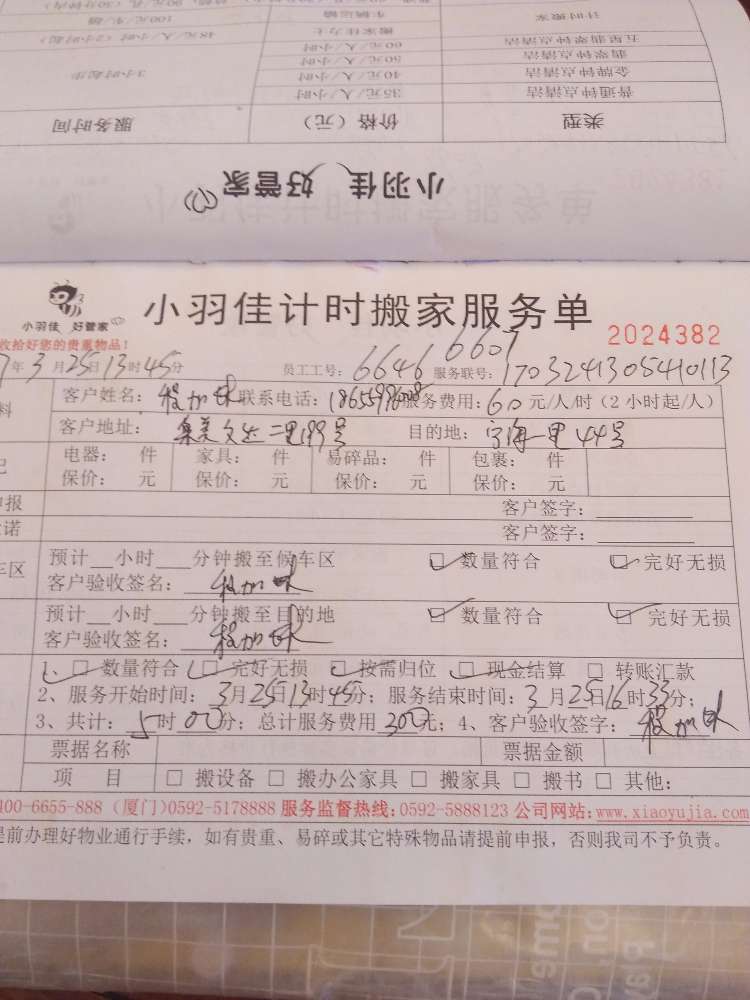 普通
90元/孔
(30分钟内)
计时搬家 车辆运输 100元/车/趟
搬家佳力士 48元/人/小时 (2小时起)
五星翡翠钟点清洁 60元/人/小时
翡翠钟点清洁 50元/人/小时
金牌钟点清洁 40元/人/小时 3小时起步
普通钟点清洁 35元/人/小时
类型 价格(元) 服务时间
小羽佳 好管家
小羽佳 好管家
小羽佳计时搬家服务单
2024382
收拾好您的贵重物品!
7年3月25日13时45分 员工工号: 6646 6607 服务联号: 1703241305410113
料 客户姓名: 程加 联系电话: 服务费用: 60元/人/时(2小时起/人)
客户地址: 集美文达二里199号 目的地: 宁海一里44号
电器: 件 家具: 件 易碎品: 件 包裹: 件
保价: 元 保价: 元 保价: 元 保价: 元
申报 客户签字:
诺 客户签字:
车区 预计__小时___分钟搬至候车区 数量符合 完好无损
客户验收签名: 程加
预计__小时___分钟搬至目的地 数量符合 完好无损
客户验收签名: 程加
1、 数量符合 完好无损 按需归位 现金结算 转账汇款
2、服务开始时间: 3月25日13时45分; 服务结束时间: 3月25日16时35分;
3、共计: 5时00分; 总计服务费用300元; 4、客户验收签字: 程加
票据名称 票据金额
项 目 搬设备 搬办公家具 搬家具 搬书 其他:
400-6655-888 (厦门)0592-5178888 服务监督热线:0592-5888123 公司网站:www.xiaoyujia.com
提前办理好物业通行手续,如有贵重、易碎或其它特殊物品请提前申报,否则我司不予负责。